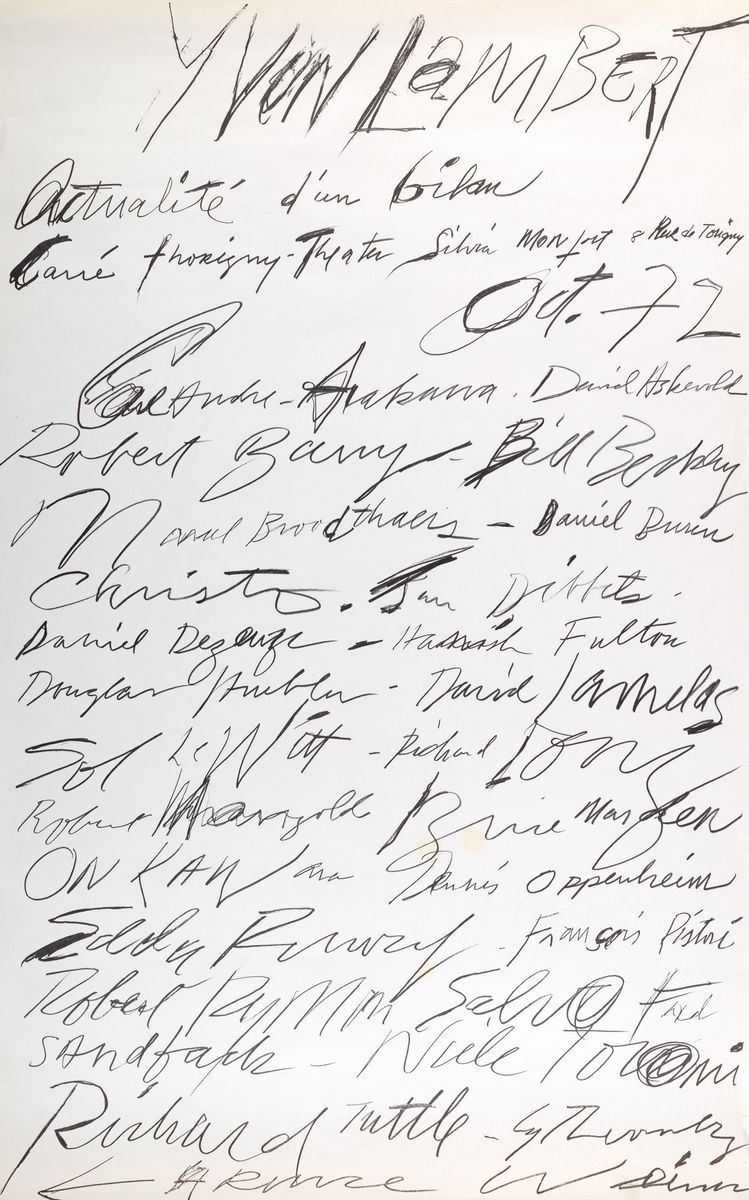 YVON LAMBERT
Actualité d'un bilan
Carré Thorigny-Theater Silvia Monfort 8 Rue de Torigny
Oct. 72
Carl Andre - Arakawa. David Askevold
Robert Barry - Bill Beckley
Marcel Broodthaers - Daniel Buren
Christo. Jan Dibbets.
Daniel Dezeuze - Hamish Fulton
Douglas Huebler - David Lamelas
Sol LeWitt - Richard Long
Robert Mangold Brice Marden
ON KAWara Dennis Oppenheim
Edda Renouf - François Ristori
Robert Ryman Salvo Fred
SAndback - Niele Toroni
Richard Tuttle - Cy Twombly
LAWRence Weiner